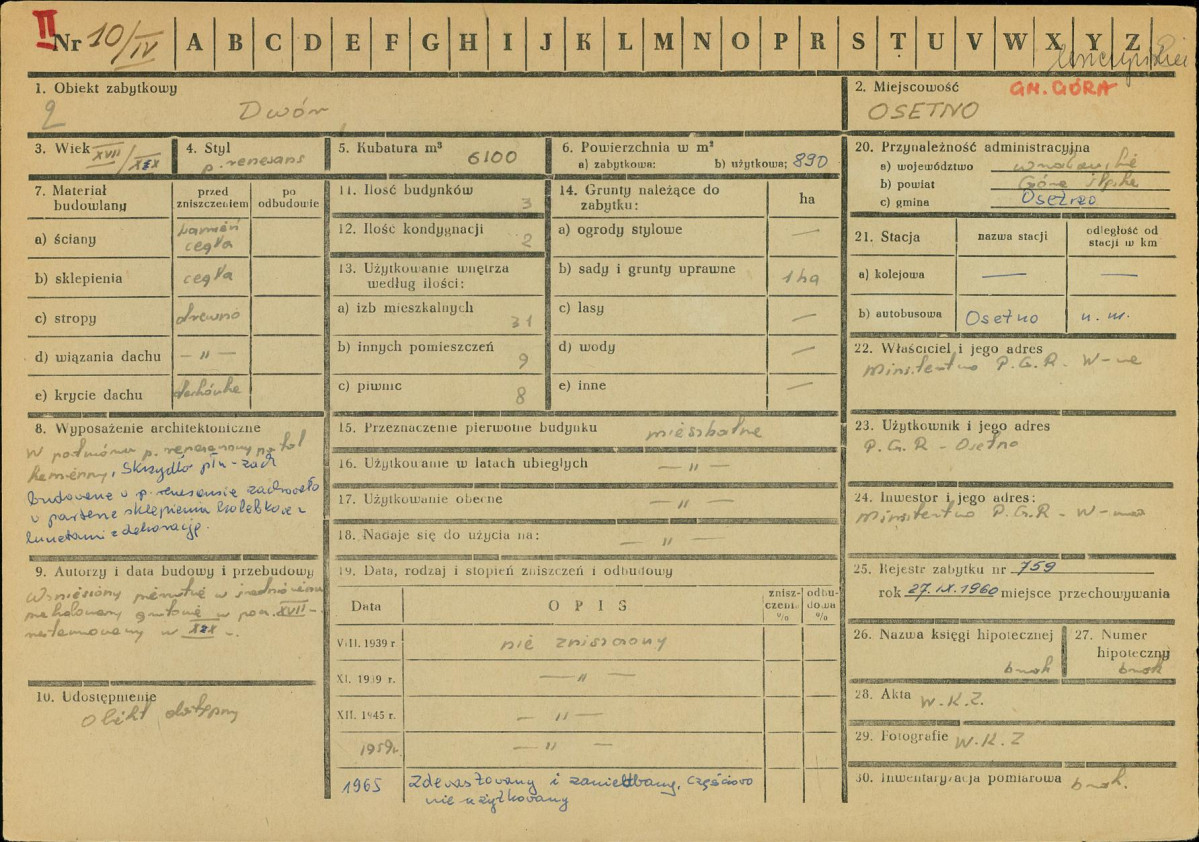 II
Nr 10/IV A B C D E F G H I J K L M N O P R S T U V W X Y Z
1. Obiekt zabytkowy
2 Dwór
2. Miejscowość GM. GÓRA
OSETNO
3. Wiek XVII / XIX
4. Styl
p. renesans
5. Kubatura m³ 6100
6. Powierzchnia w m²
a) zabytkowa: b) użytkowa; 890
20. Przynależność administracyjna
a) województwo wrocławskie
b) powiat Góra Śląska
c) gmina Osetno
7. Materiał budowlany
przed zniszczeniem
po odbudowie
a) ściany kamień cegła
b) sklepienia cegła
c) stropy drewno
d) wiązania dachu — " —
e) krycie dachu dachówka
11. Ilość budynków 3
12. Ilość kondygnacji 2
13. Użytkowanie wnętrza
według ilości:
a) izb mieszkalnych 31
b) innych pomieszczeń 9
c) piwnic 8
14. Grunty należące do
zabytku:
ha
a) ogrody stylowe —
b) sady i grunty uprawne 1 ha
c) lasy —
d) wody —
e) inne —
21. Stacja
nazwa stacji
odległość od
stacji w km
a) kolejowa — —
b) autobusowa Osetno n. m.
22. Właściciel i jego adres
P. G. R. W-wa
8. Wyposażenie architektoniczne
W p. renesansowy portal
kamienny, Skrzydło płn-zach
budowane w p. renesansie zachowało
w parterze sklepienia kolebkowe z
lunetami z dekoracją.
15. Przeznaczenie pierwotne budynku mieszkalne
16. Użytkowanie w latach ubiegłych — " —
17. Użytkowanie obecne — " —
18. Nadaje się do użycia na: — " —
23. Użytkownik i jego adres
P. G. R - Osetno
24. Inwestor i jego adres:
P. G. R - W-wa
9. Autorzy i data budowy i przebudowy
Wzniesiony pierwotnie w średniowieczu
gruntownie w pocz. XVII -
restaurowany w XIX -.
19. Data, rodzaj i stopień zniszczeń i odbudowy
Data
OPIS
zniszczenia %
odbudowa %
VIII. 1939 r. nie zniszczony
XI. 1939 r. — " —
XII. 1945 r. — " —
1959r. — " —
1965 Zdewastowany i zaniedbany, częściowo
nie użytkowany
25. Rejestr zabytku nr 759
rok 27.IX.1960 miejsce przechowywania
26. Nazwa księgi hipotecznej
brak
27. Numer
hipoteczny
brak
10. Udostępnienie
Obiekt dostępny
28. Akta W. K. Z.
29. Fotografie W. K. Z
30. Inwentaryzacja pomiarowa brak.